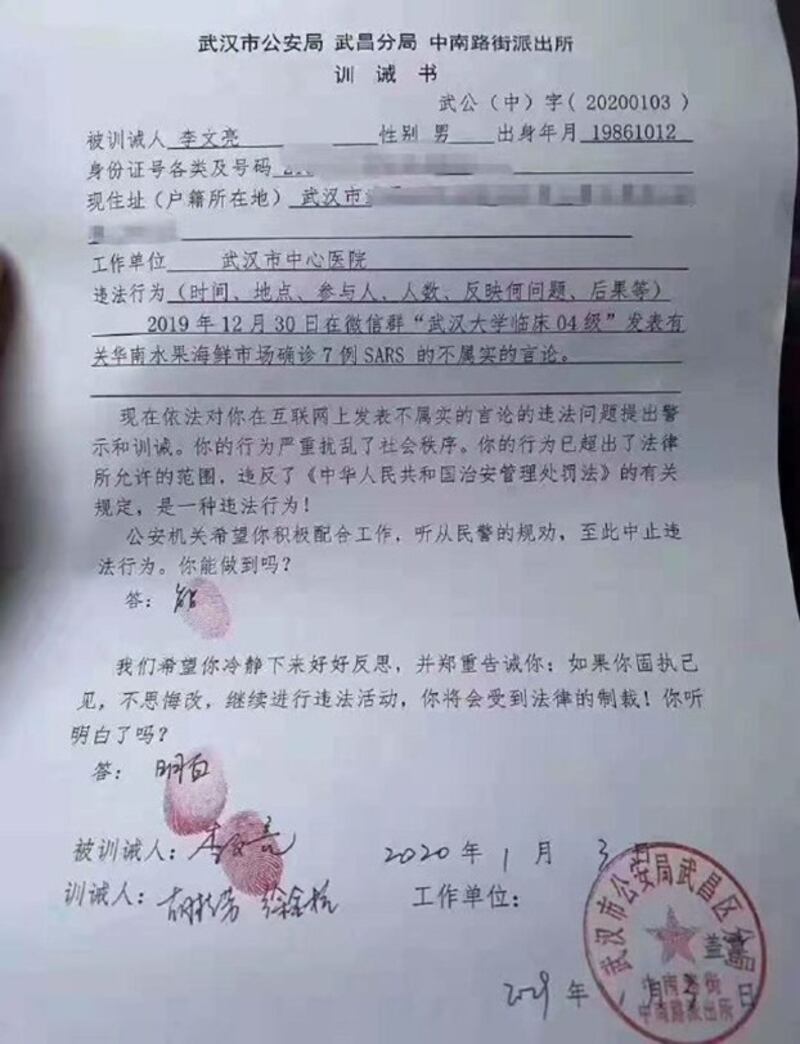 武汉市公安局 武昌分局 中南路街派出所
训 诫 书
武公（中）字（20200103）
被训诫人 李文亮 性别 男 出身年月 19861012
身份证号各类及号码
现住址（户籍所在地） 武汉市
工作单位 武汉市中心医院
违法行为（时间、地点、参与人、人数、反映何问题、后果等）
2019 年 12 月 30 日在微信群“武汉大学临床 04 级”发表有
关华南水果海鲜市场确诊 7 例 SARS 的不属实的言论。
现在依法对你在互联网上发表不属实的言论的违法问题提出警
示和训诫。你的行为严重扰乱了社会秩序。你的行为已超出了法律
所允许的范围，违反了《中华人民共和国治安管理处罚法》的有关
规定，是一种违法行为！
公安机关希望你积极配合工作，听从民警的规劝，至此中止违
法行为。你能做到吗？
答： 能
我们希望你冷静下来好好反思，并郑重告诫你：如果你固执己
见，不思悔改，继续进行违法活动，你将会受到法律的制裁！你听
明白了吗？
答： 明白
被训诫人：李文亮 2020 年 1 月 3 日
训诫人： 工作单位：
武汉市公安局武昌区分局
盖章
中南路街
中南路派出所
年 1 月 3 日